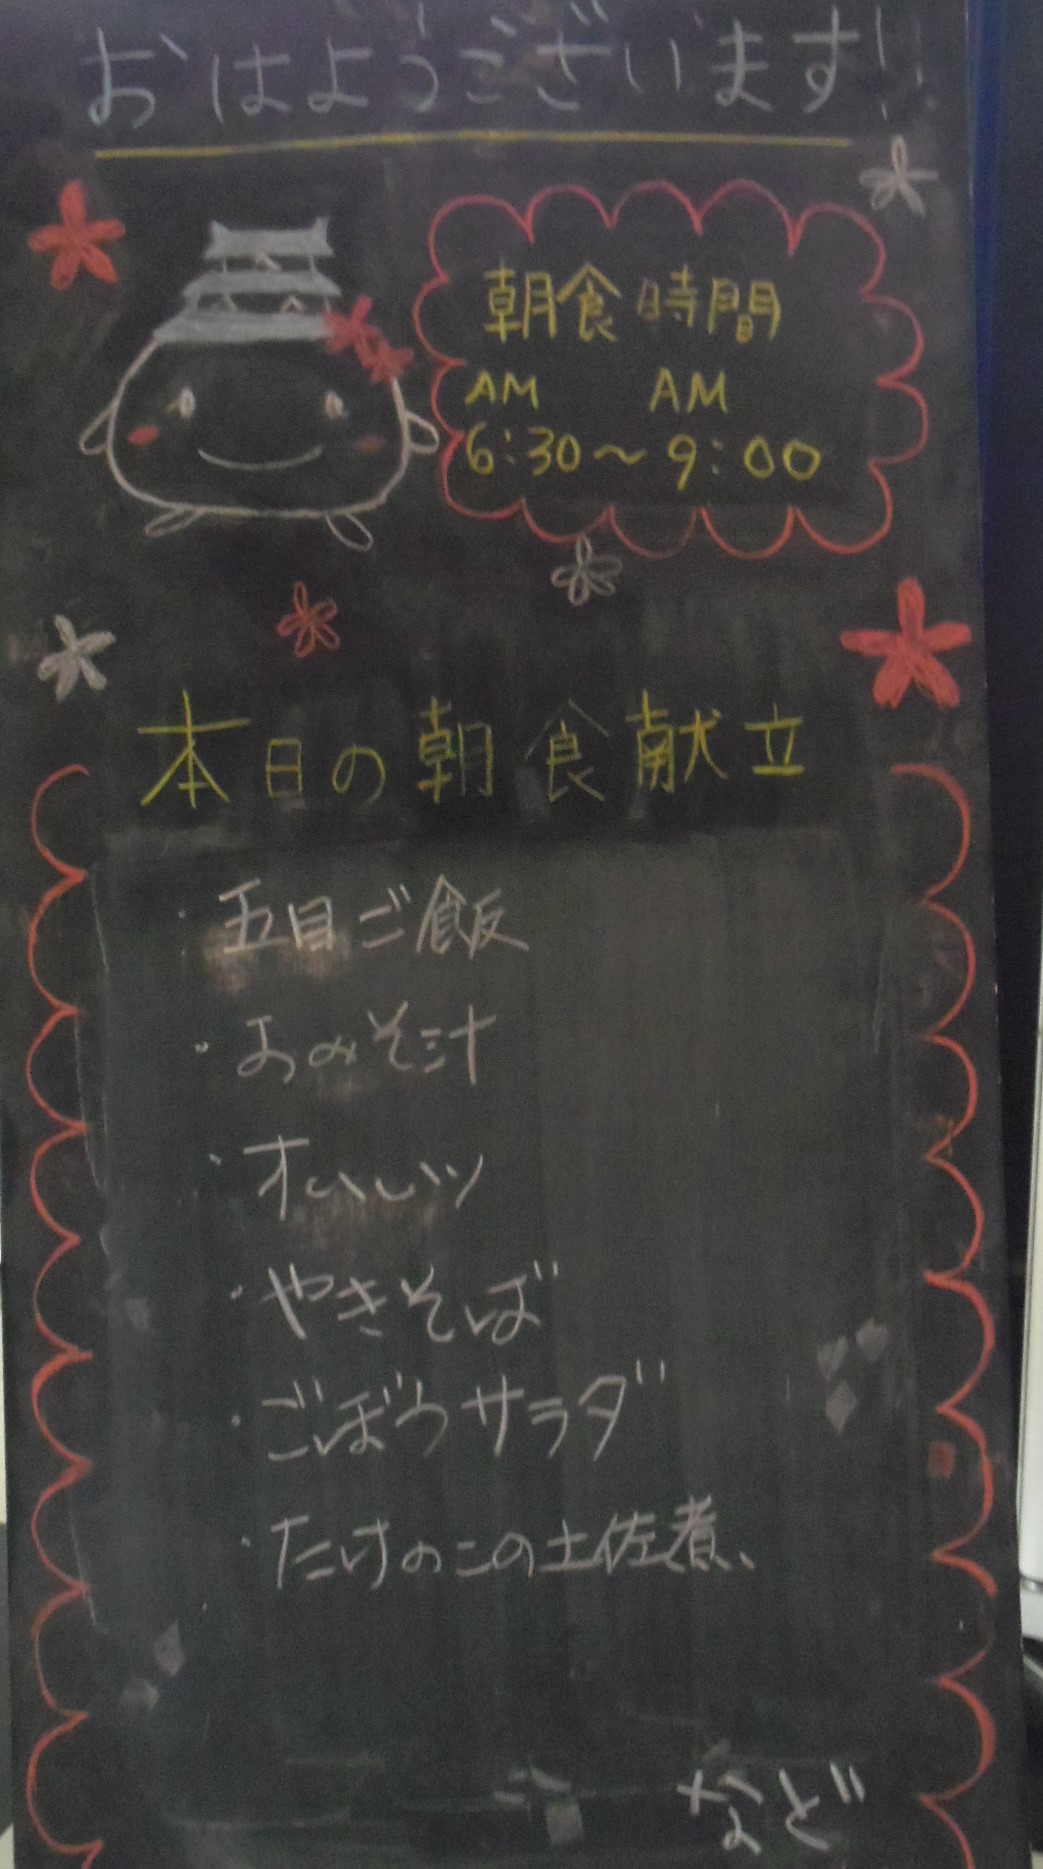 おはようございます!!
朝食時間
AM AM
6:30～9:00
本日の朝食献立
・五目ご飯
・おみそ汁
・オムレツ
・やきそば
・ごぼうサラダ
・たけのこの土佐煮、
など